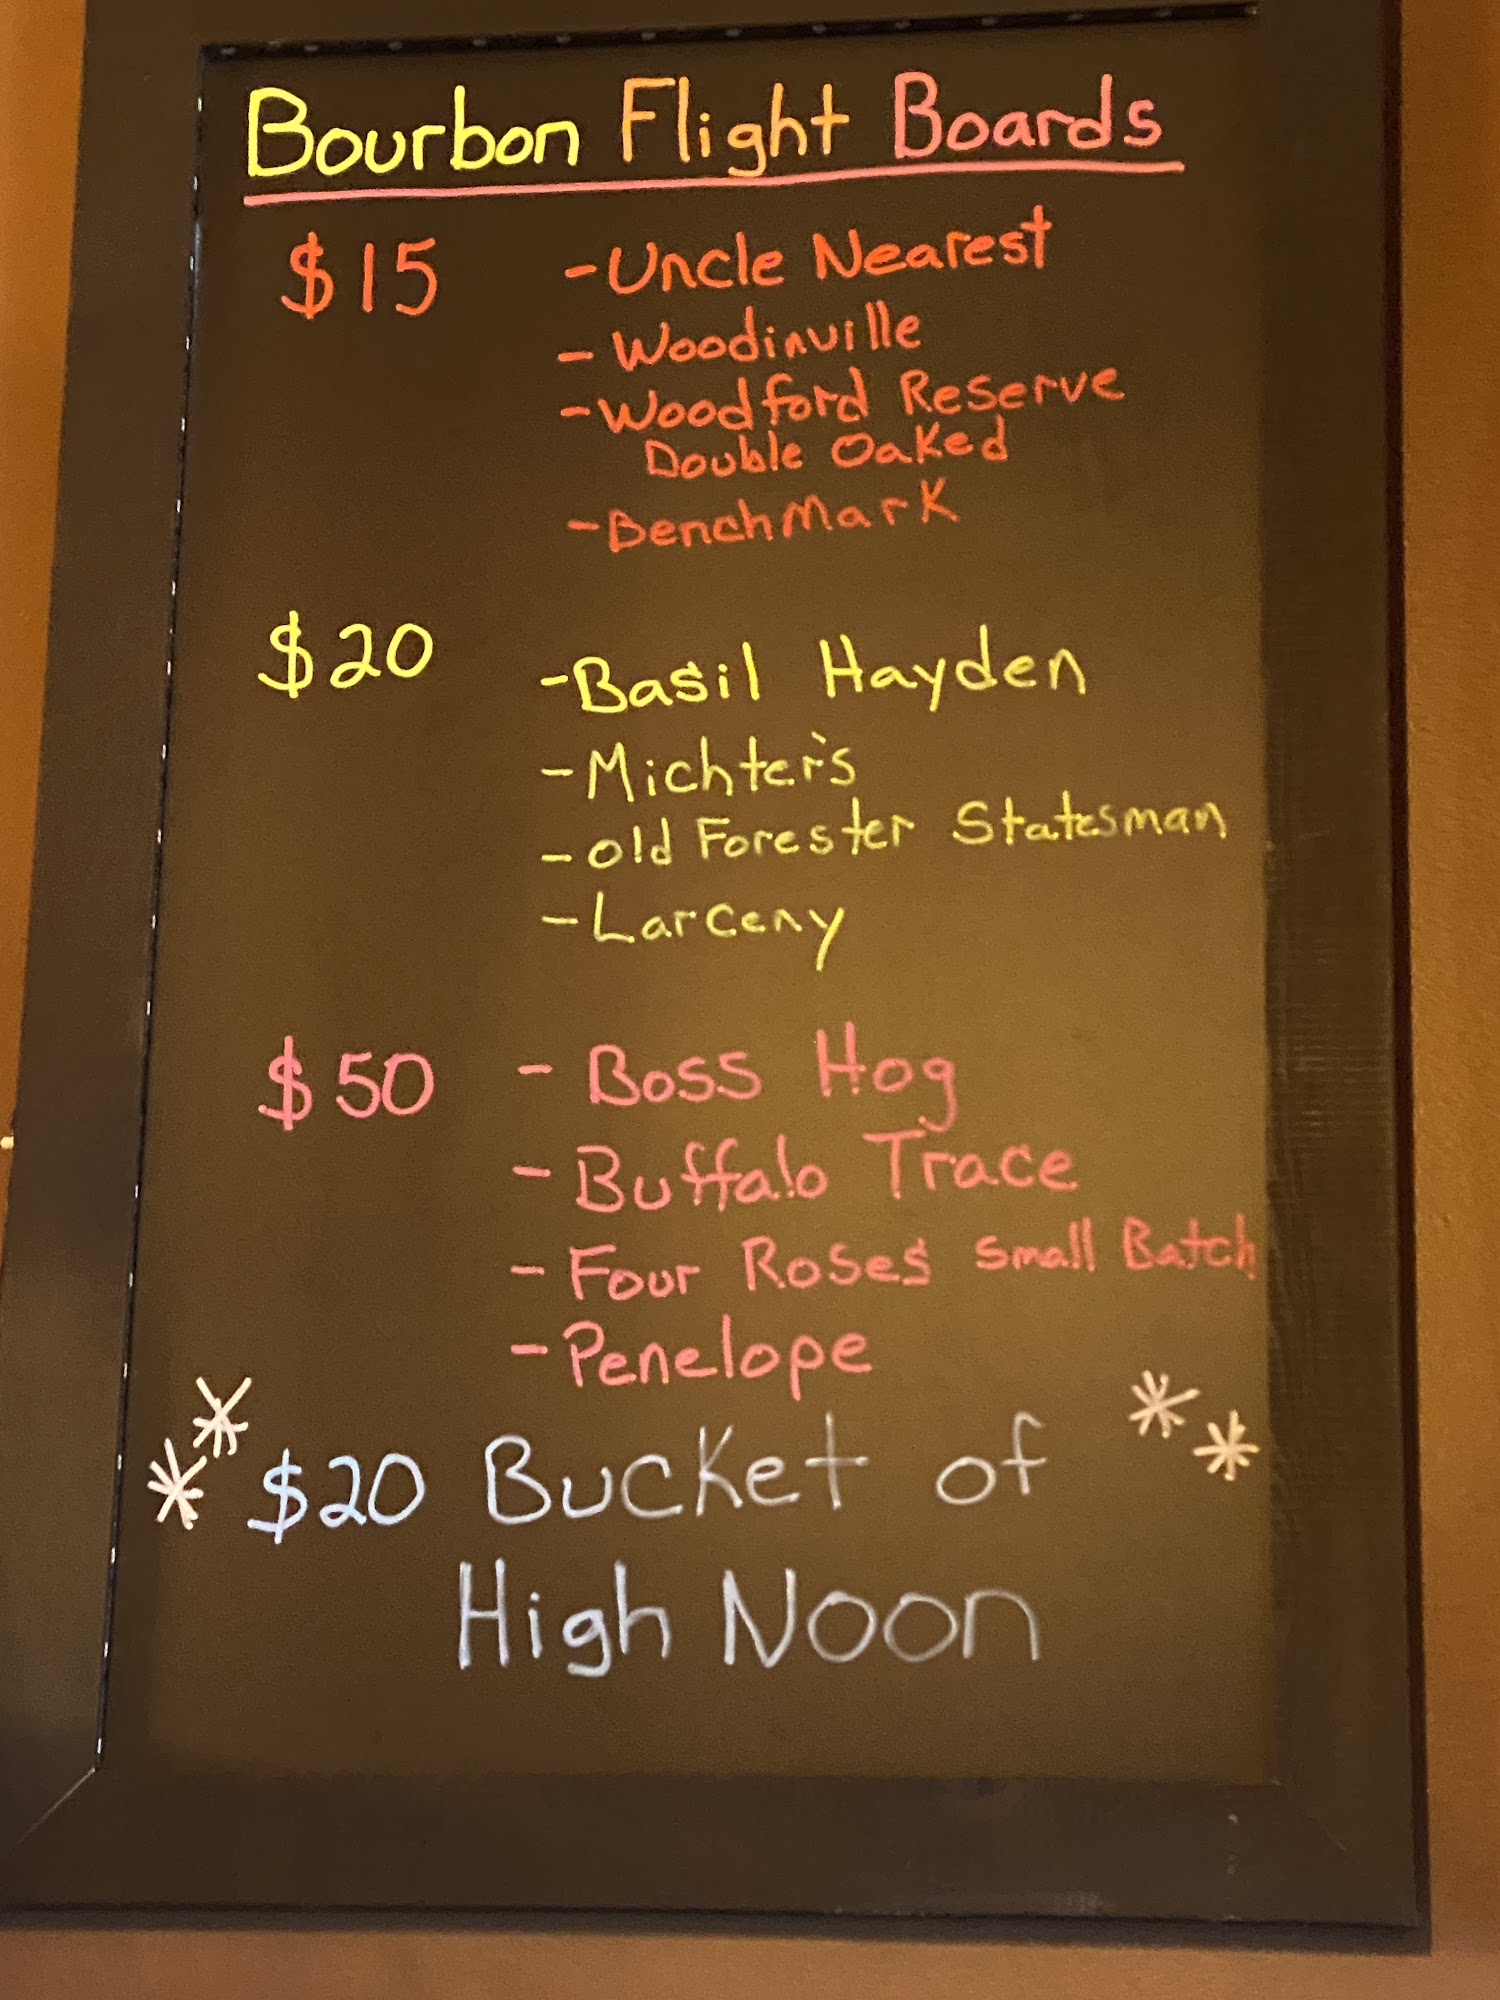 Bourbon Flight Boards
$15 - Uncle Nearest
- Woodinville
- Woodford Reserve
Double Oaked
- Benchmark
$20 - Basil Hayden
- Michter's
- Old Forester Statesman
- Larceny
$50 - Boss Hog
- Buffalo Trace
- Four Roses Small Batch
- Penelope
** $20 Bucket of **
High Noon